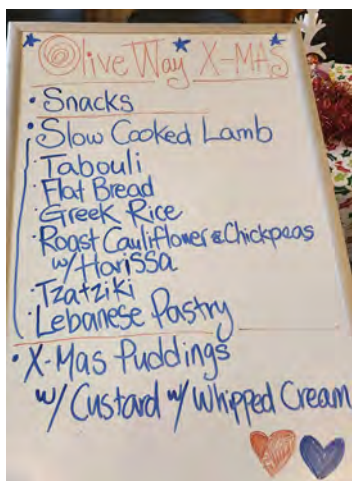 Olive Way X-MAS
• Snacks
• Slow Cooked Lamb
· Tabouli
· Flat Bread
· Greek Rice
· Roast Cauliflower & Chickpeas
w/ Harissa
· Tzatziki
· Lebanese Pastry
• X-Mas Puddings
w/ Custard w/ Whipped Cream